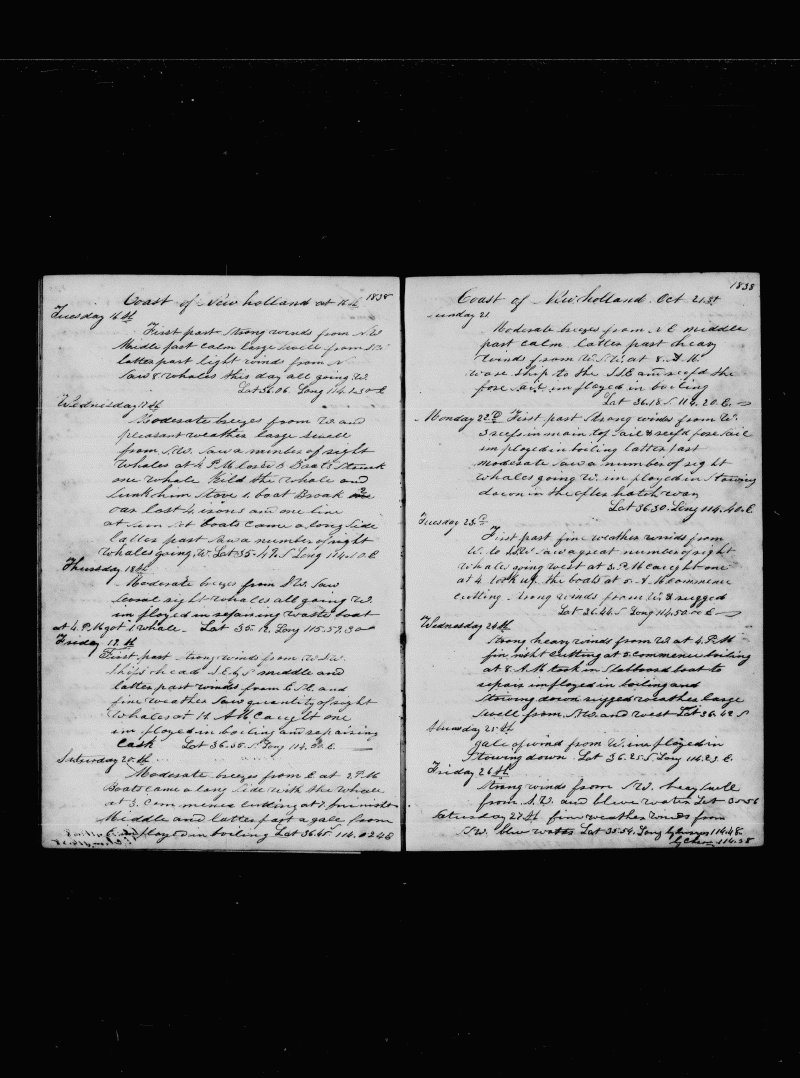 Coast of New holland at 16th 1838
Tuesday 16th
First part strong winds from NW
Middle part calm large swell from SW
latter part light winds from N
Saw 8 whales this day all going W.
Lat 36.06. Long 114.
Wednesday 17th
Moderate breezes from W and
pleasant weather large swell
from SW. Saw a number of right
whales at 4 P.M. Boats Struck
one whale Kild the whale and
sunk him Stove 1 boat Broak
oar lost 4 irons and one line
at boats came a long Side
latter part Saw a number of right
whales going W. Lat 35.47 S Long 114.10. E
Thursday 18th
Moderate breezes from SW Saw
several right whales all going W.
imployed in repairing waste boat
at 4. P.M got 1 whale. Lat 35.12. Long 115.57.30
Friday 19th
First part strong winds from WSW.
Ships head S.E.b.S middle and
latter part winds from and
fine weather Saw quantity of right
Whales at 11. A M Caught one
imployed in boiling and repairing
Cask Lat 36.35. S. Long 114.20. E.
Saturday 20th
Moderate breezes from E at 2 P.M
Boats came a long Side with the Whale
at 3. Commenced cutting at 7 finished
Middle and latter part a gale from
imployed in boiling Lat 36.45 114.02 45
1838
Coast of New holland Oct 21st
Sunday 21
Moderate breezes from N E middle
part calm latter part heavy
winds from W.S.W. at 8. A.M.
wore Ship to the and reefd the
fore Sail imployed in boiling
Lat 36.18 S 114.20. E.
Monday 22D First part Strong winds from W.
3 reefs in main top Sail & reefd fore Sail
imployed in boiling latter part
moderate Saw a number of right
whales going W. imployed in Stowing
down in the after hatch way
Lat 36.30. Long 114.40. E
Tuesday 23D
First part fine weather winds from
W. to Saw a great number of right
whales going west at 3. P.M caught one
at 4. took up the boats at 5. A.M commence
cutting Strong winds from W. & rugged
Lat 36.44. S Long 114.50.00 E
Wednesday 24th
Strong heavy winds from W at 4. P.M
finisht cutting at 8 commence boiling
at 8. A.M took in Starboard boat to
repair imployed in boiling and
Stowing down rugged weather large
Swell from SW. and west Lat 36.42 S
Thursday 25th
gale of wind from W. imployed in
Stowing down. Lat 36.25 S. Long 114.23. E.
Friday 26th
Strong winds from SW. heavy swell
from S.W. and blue water Lat 35.56
Saturday 27th fine weather winds from
SW. blue water Lat 35.54. Long by 114.48.
by Chron 114.38